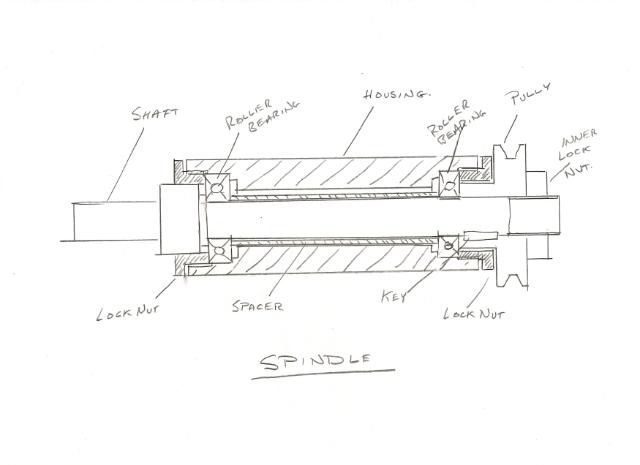 SHAFT
ROLLER
BEARING
HOUSING.
ROLLER
BEARING
PULLY
INNER
LOCK
NUT.
LOCK NUT
SPACER
KEY
LOCK NUT
SPINDLE